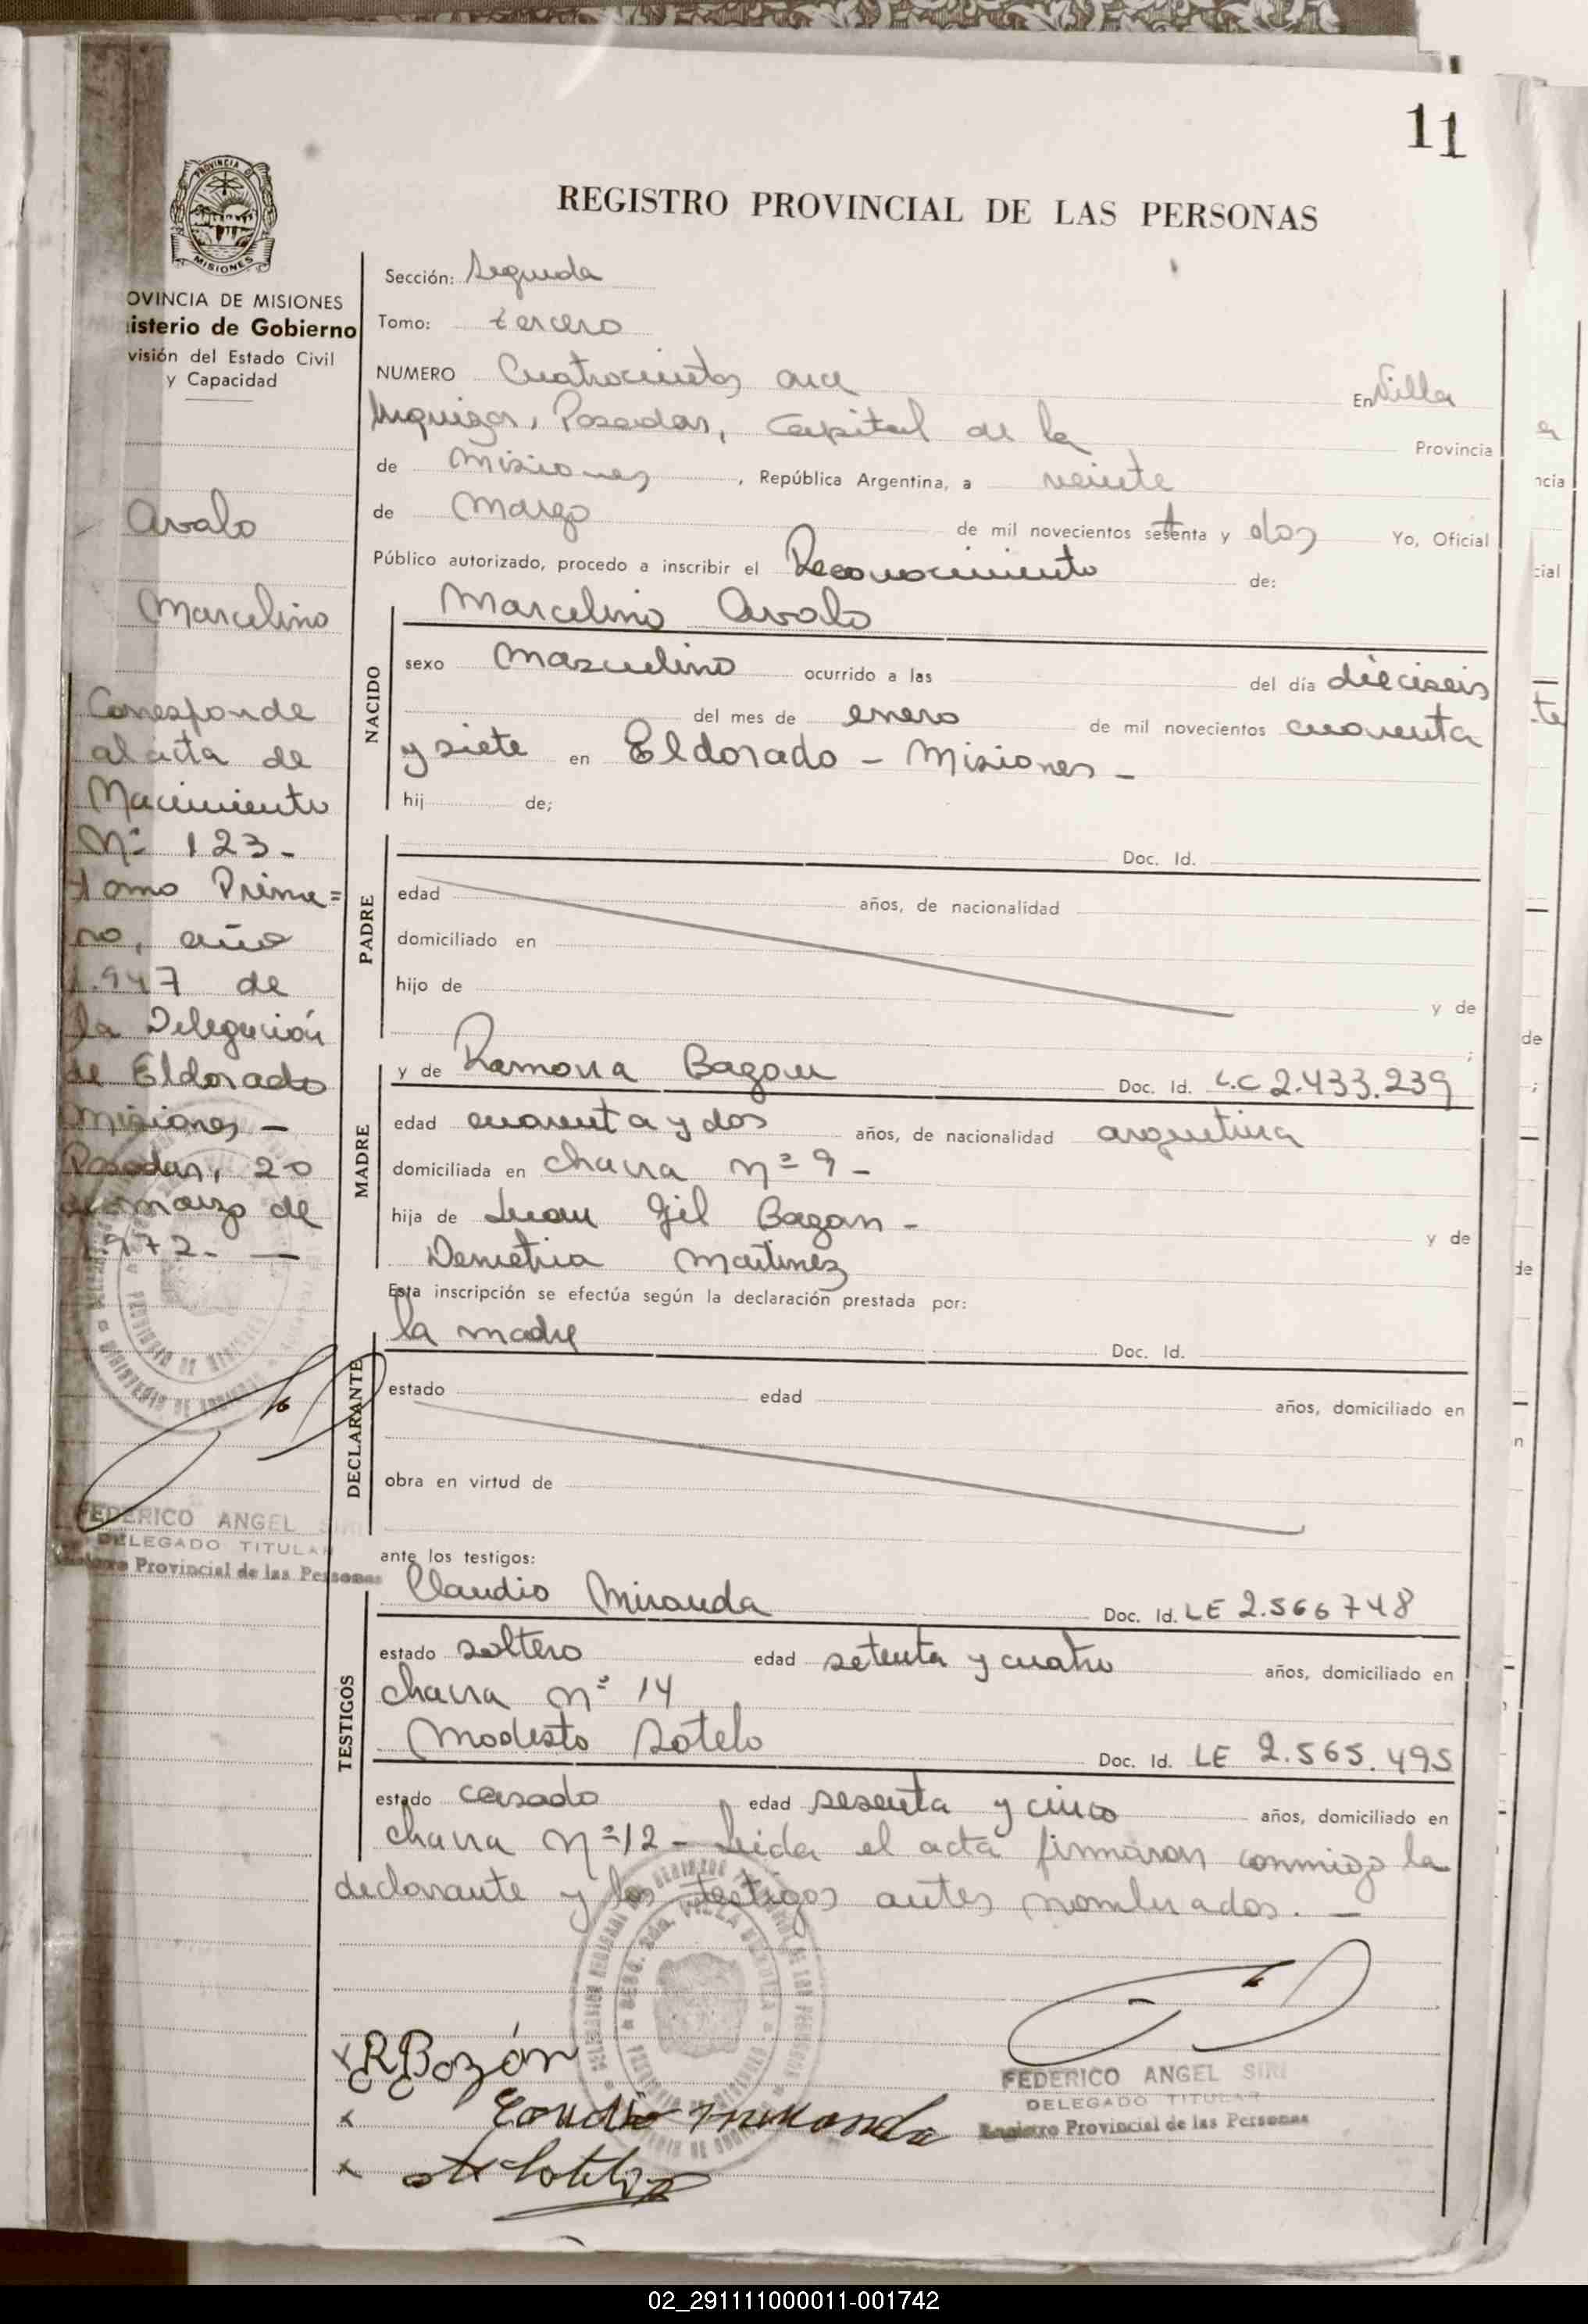 11
REGISTRO PROVINCIAL DE LAS PERSONAS
PROVINCIA DE
MISIONES
OVINCIA DE MISIONES
isterio de Gobierno
visión del Estado Civil
y Capacidad
Avalo
Marcelino
Corresponde
al acta de
Nacimiento
Nº 123-
tomo Prime=
ro, año
1.947 de
la Delegación
de Eldorado
Misiones -
Posadas, 20
de marzo de
1.972. -
FEDERICO ANGEL SIRI
DELEGADO TITULAR
Registro Provincial de las Personas
Sección: Segunda
Tomo: tercero
NUMERO Cuatrocientos once En Villa
Urquiza, Posadas, Capital de la Provincia
de Misiones, República Argentina, a veinte
de Marzo de mil novecientos setenta y dos Yo, Oficial
Público autorizado, procedo a inscribir el Reconocimiento de:
NACIDO
Marcelino Avalo
sexo Masculino ocurrido a las del día dieciseis
del mes de enero de mil novecientos cuarenta
y siete en Eldorado - Misiones -
hij de;
PADRE
Doc. Id.
edad años, de nacionalidad
domiciliado en
hijo de y de
;
MADRE
y de Ramona Bagan Doc. Id. L.C 2.433.239
edad cuarenta y dos años, de nacionalidad argentina
domiciliada en chacra nº 9 -
hija de Juan Gil Bagan - y de
Demetria Martinez
Esta inscripción se efectúa según la declaración prestada por:
DECLARANTE
la madre Doc. Id.
estado edad años, domiciliado en
obra en virtud de
ante los testigos:
TESTIGOS
Claudio Miranda Doc. Id. LE 2.566748
estado soltero edad setenta y cuatro años, domiciliado en
chacra nº 14
Modesto Sotelo Doc. Id. LE 2.565.495
estado casado edad sesenta y cinco años, domiciliado en
chacra Nº 12 - Leida el acta firmaron conmigo la
declarante y los testigos antes nombrados. -
x R Bozán
x Claudio Miranda
x M Sotelo
FEDERICO ANGEL SIRI
DELEGADO TITULAR
Registro Provincial de las Personas
02_291111000011-001742